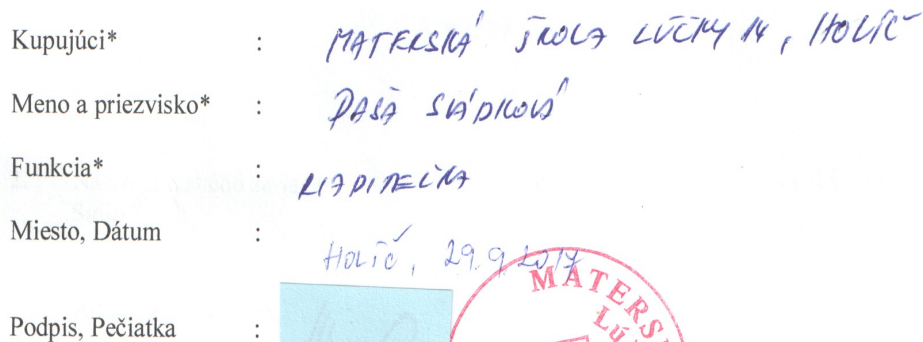 Kupujúci* : MATERSKÁ ŠKOLA LÚČKY 14, HOLÍČ
Meno a priezvisko* : DAŠA
Funkcia* : RIADITEĽKA
Miesto, Dátum : HOLÍČ, 29.9.2017
MATERS
Lú
Podpis, Pečiatka :